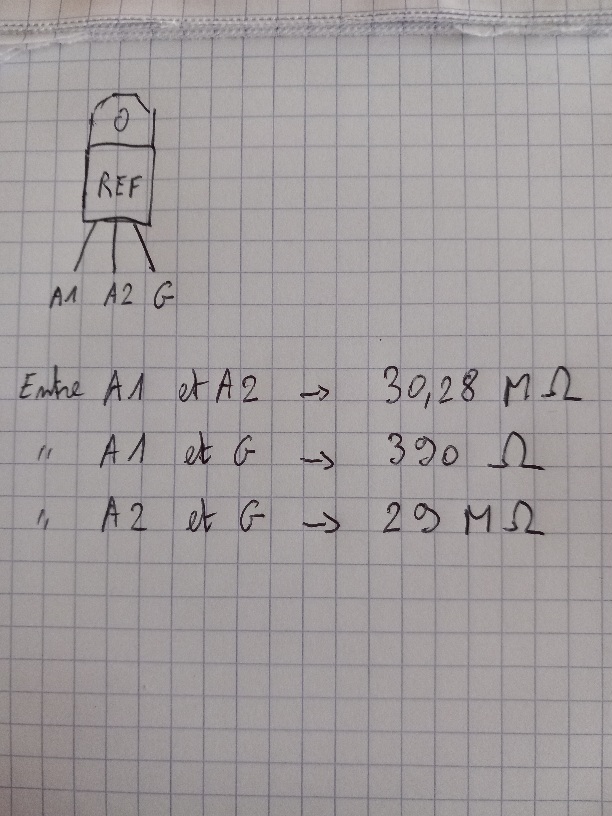 REF
A1 A2 G
Entre A1 et A2 → 30,28 MΩ
" A1 et G → 390 Ω
" A2 et G → 29 MΩ